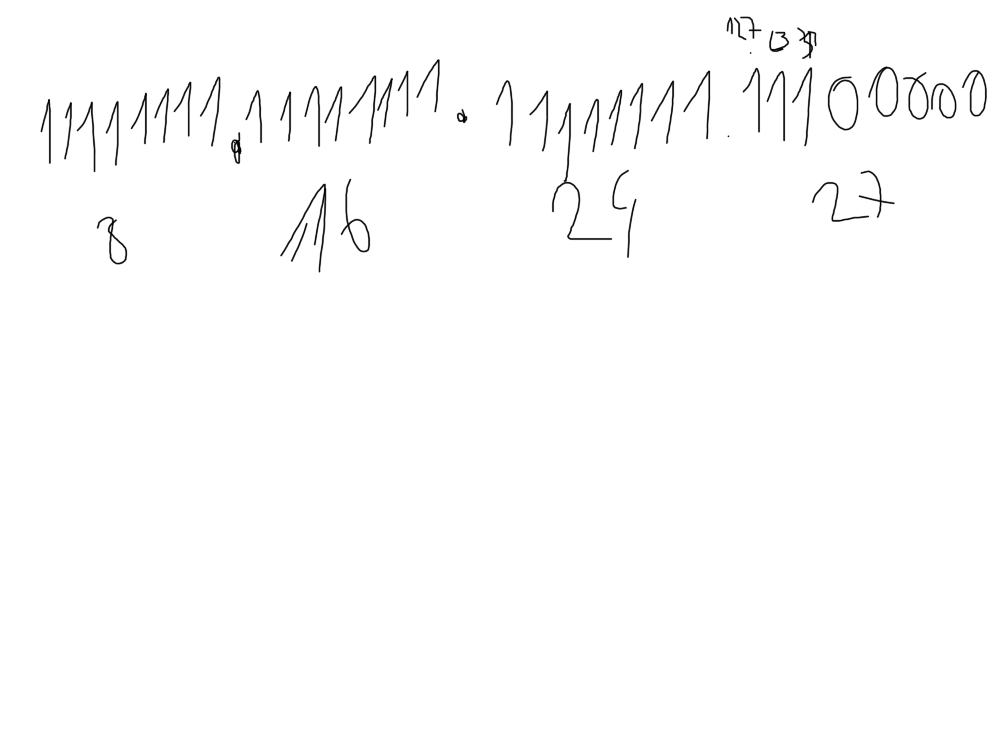 127
11111111.11111111.11111111.11100000
8 16 24 27